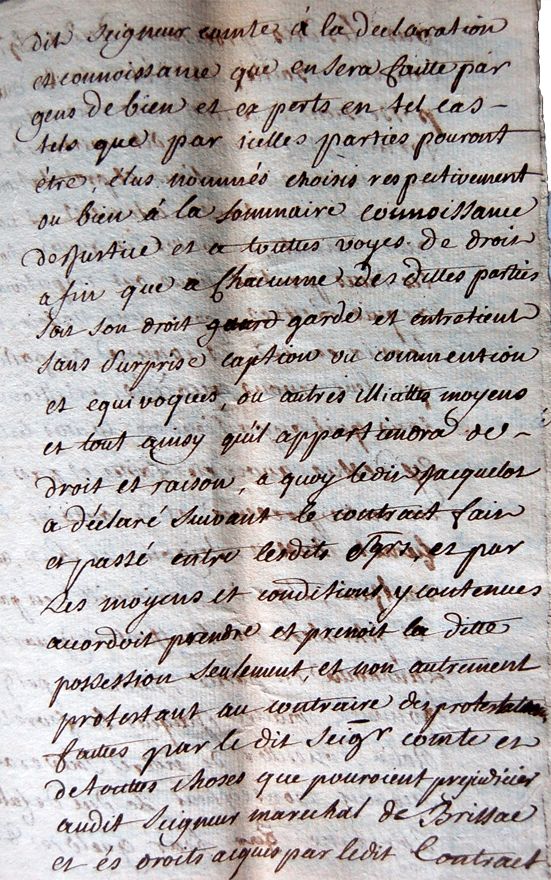 dit Seigneur comte á la declaration
et connoissance que en sera faitte par
gens de bien et experts en tel cas -
tels que par icelles parties pouront
être, élus nommés choisis respectivement
ou bien á la sommaire connoissance
de justice et a touttes voyes de droit
afin que a Chacunne des dittes parties
soit son droit garde et entretient
sans surprise caption ou connvention
et equivoques, ou autres illicittes moyens
et tout ainsy qu'il appartiendra de -
droit et raison, a quoy ledit Jacquelot
a déclaré suivant le contract fait
et passé entre lesdits Sgrs, et par
Les moyens et conditions y contenues
acordoit prendre et prenoit la ditte
possession seulement, et non autrement
protestant au contraire des protestations
faittes par le dit Seigr comte et
de toutes choses que pouroient prejudicier
audit Seigneur marechal de Brissac
et és droits acquis par ledit Contract